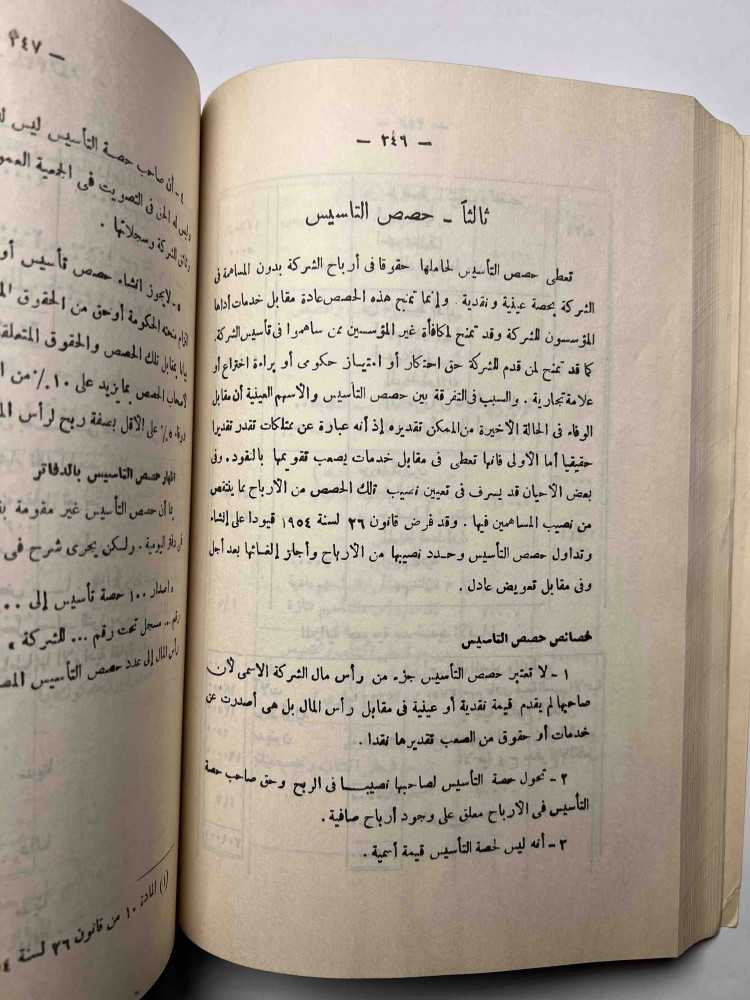 — ٢٤٦ —
ثالثاً ـ حصص التاسيس
تعطى حصص التأسيس لحاملها حقوقا فى أرباح الشركة بدون المساهمة فى
الشركة بحصة عينية و نقدية . وإنما تمنح هذه الحصص عادة مقابل خدمات أداها
المؤسسون للشركة وقد تمنح لمكافأة غير المؤسسين ممن ساهموا فى تأسيس الشركة.
كما قد تمنح لمن قدم للشركة حق احتكار أو امتياز حكومى أو براءة اختراع أو
علامة تجارية . والسبب فى التفرقة بين حصص التأسيس والاسهم العينية أن مقابل
الوفاء فى الحالة الأخيرة من الممكن تقديره إذ أنه عبارة عن ممتلكات تقدر تقديرا
حقيقيا أما الاولى فانها تعطى فى مقابل خدمات يصعب تقويمها بالنقود. وفى
بعض الأحيان قد يسرف فى تعيين نصيب تلك الحصص من الأرباح بما ينتقص
من نصيب المساهمين فيها . وقد فرض قانون ٢٦ لسنة ١٩٥٤ قيودا على إنشاء
وتداول حصص التأسيس وحدد نصيبها من الارباح وأجاز إلغائها بعد أجل
وفى مقابل تعويض عادل .
خصائص حصص التاسيس
١ - لا تعتبر حصص التأسيس جزء من رأس مال الشركة الاسمى لأن
صاحبها لم يقدم قيمة نقدية أو عينية فى مقابل رأس المال بل هى أصدرت عن
خدمات أو حقوق من الصعب تقديرها نقدا .
٢ - تخول حصة التأسيس لصاحبها نصيبا فى الربح وحق صاحب حصة
التأسيس فى الارباح معلق على وجود أرباح صافية .
٣ - أنه ليس لحصة التأسيس قيمة أسمية .
— ٢٤٧
٤ - أن صاحب حصة التأسيس ليس
وليس له الحق فى التصويت فى الجمعية
وثائق الشركة وسجلاتها .
٥ - لا يجوز انشاء حصص تأسيس أو
التزام منحته الحكومة أوحق من الحقوق
بيانا بمقابل تلك الحصص والحقوق
لاصحاب الحصص بما يزيد على ١٠٪ من
٥٪ على الاقل بصفة ربح لرأس
اظهار حصص التاسيس بالدفاتر
بما أن حصص التأسيس غير مقومة
فى دفتر اليومية . ولكن يجرى شرح فى
« اصدار ١٠٠ حصة تأسيس إلى ...
رقم ... مسجل تحت رقم ... للشركة »
رأس المال إلى عدد حصص التأسيس
(١) المادة ١٠ من قانون ٢٦ لسنة